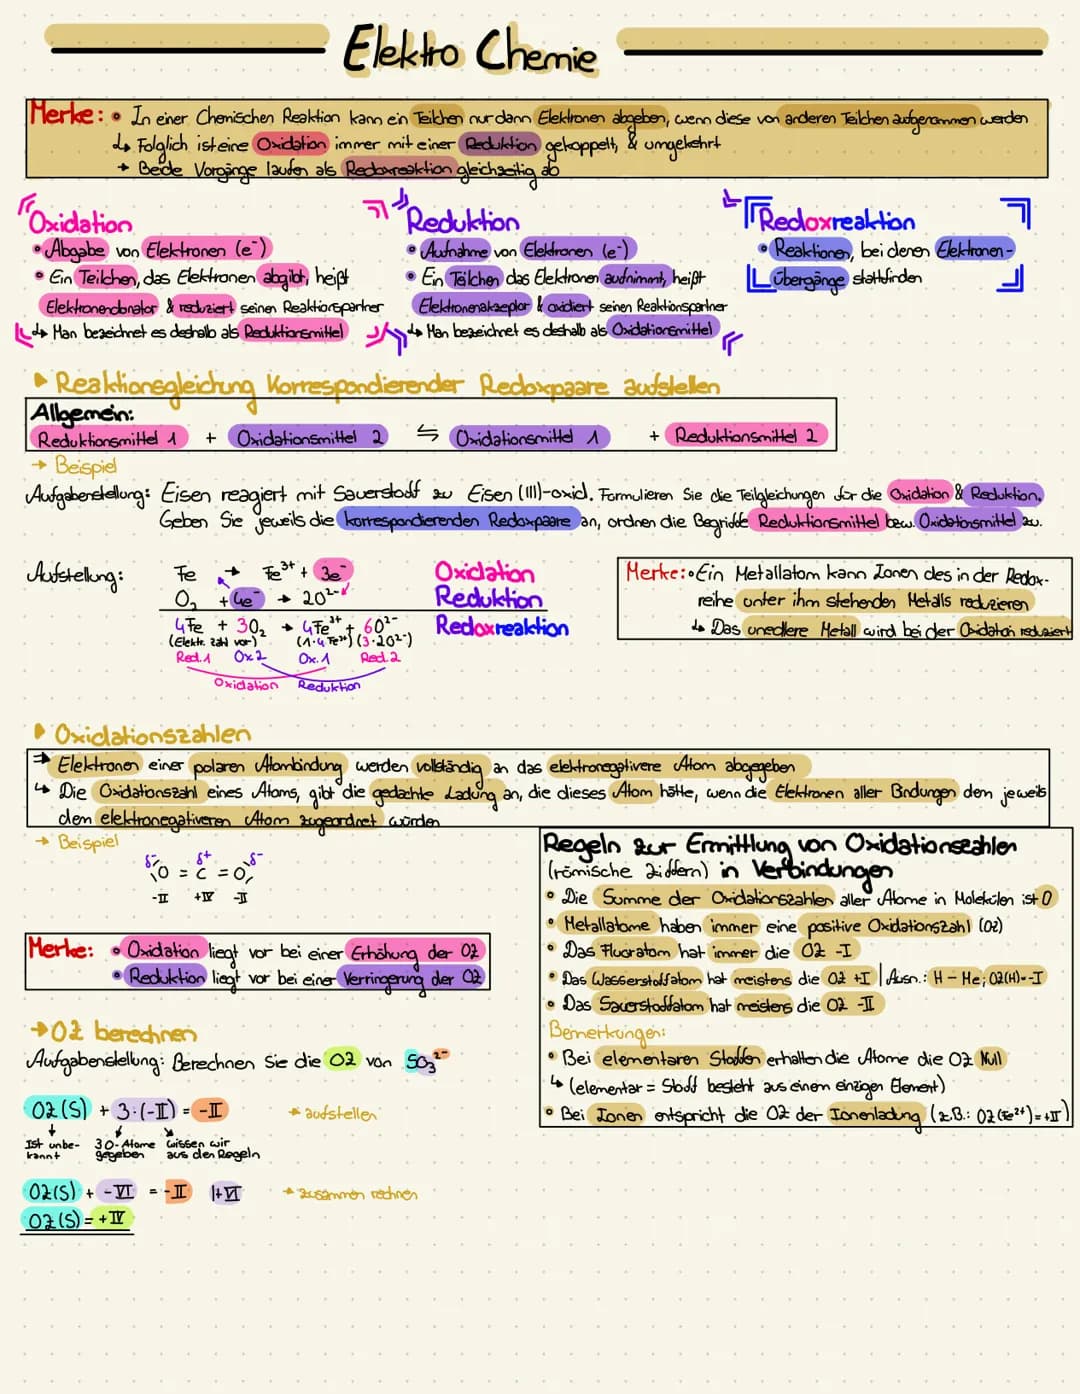 Elektro Chemie
Merke: • In einer Chemischen Reaktion kann ein Teilchen nur dann Elektronen abgeben, wenn diese von anderen Teilchen aufgenommen werden
↳ Folglich ist eine Oxidation immer mit einer Reduktion gekoppelt, & umgekehrt
→ Beide Vorgänge laufen als Redoxreaktion gleichzeitig ab
Oxidation
• Abgabe von Elektronen (e⁻)
• Ein Teilchen, das Elektronen abgibt, heißt
Elektronendonator & reduziert seinen Reaktionspartner
↳ Man bezeichnet es deshalb als Reduktionsmittel
Reduktion
• Aufnahme von Elektronen (e⁻)
• Ein Teilchen das Elektronen aufnimmt, heißt
Elektronenakzeptor & oxidiert seinen Reaktionspartner
↳ Man bezeichnet es deshalb als Oxidationsmittel
Redoxreaktion
• Reaktionen, bei denen Elektronen-
übergänge stattfinden
▸ Reaktionsgleichung Korrespondierender Redoxpaare aufstellen
Allgemein:
Reduktionsmittel 1 + Oxidationsmittel 2 ⇋ Oxidationsmittel 1 + Reduktionsmittel 2
→ Beispiel
Aufgabenstellung: Eisen reagiert mit Sauerstoff zu Eisen (III)-oxid. Formulieren Sie die Teilgleichungen für die Oxidation & Reduktion.
Geben Sie jeweils die korrespondierenden Redoxpaare an, ordnen die Begriffe Reduktionsmittel bzw. Oxidationsmittel zu.
Aufstellung: Fe → Fe³⁺ + 3e⁻ Oxidation
O₂ + 4e⁻ → 2O²⁻ Reduktion
4Fe + 3O₂ → 4Fe³⁺ + 6O²⁻ Redoxreaktion
(Elektr. zahl vor) (1·4 Fe³⁺) (3·2O²⁻)
Red.1 Ox2 Ox.1 Red.2
Oxidation Reduktion
Merke: • Ein Metallatom kann Ionen des in der Redox-
reihe unter ihm stehenden Metalls reduzieren
↳ Das unedlere Metall wird bei der Oxidation reduziert
▸ Oxidationszahlen
⇒ Elektronen einer polaren Atombindung werden vollständig an das elektronegativere Atom abgegeben
↳ Die Oxidationszahl eines Atoms, gibt die gedachte Ladung an, die dieses Atom hätte, wenn die Elektronen aller Bindungen dem jeweils
dem elektronegativeren Atom zugeordnet würden
→ Beispiel
δ⁻ δ⁺ δ⁻
O = C = O
-II +IV -II
Merke: • Oxidation liegt vor bei einer Erhöhung der OZ
• Reduktion liegt vor bei einer Verringerung der OZ
→ OZ berechnen
Aufgabenstellung: Berechnen Sie die OZ von SO₃²⁻
OZ(S) + 3·(-II) = -II → aufstellen
Ist unbe- 3 O-Atome wissen wir
kannt gegeben aus den Regeln
OZ(S) + -VI = -II |+VI → zusammen rechnen
OZ(S) = +IV
Regeln zur Ermittlung von Oxidationszahlen
(römische Ziffern) in Verbindungen
• Die Summe der Oxidationszahlen aller Atome in Molekülen ist 0
• Metallatome haben immer eine positive Oxidationszahl (OZ)
• Das Fluoratom hat immer die OZ -I
• Das Wasserstoffatom hat meistens die OZ +I | Ausn.: H - Me; OZ(H)=-I
• Das Sauerstoffatom hat meistens die OZ -II
Bemerkungen:
• Bei elementaren Stoffen erhalten die Atome die OZ Null
↳ (elementar = Stoff besteht aus einem einzigen Element)
• Bei Ionen entspricht die OZ der Ionenladung (z.B.: OZ(Fe²⁺)=+II)